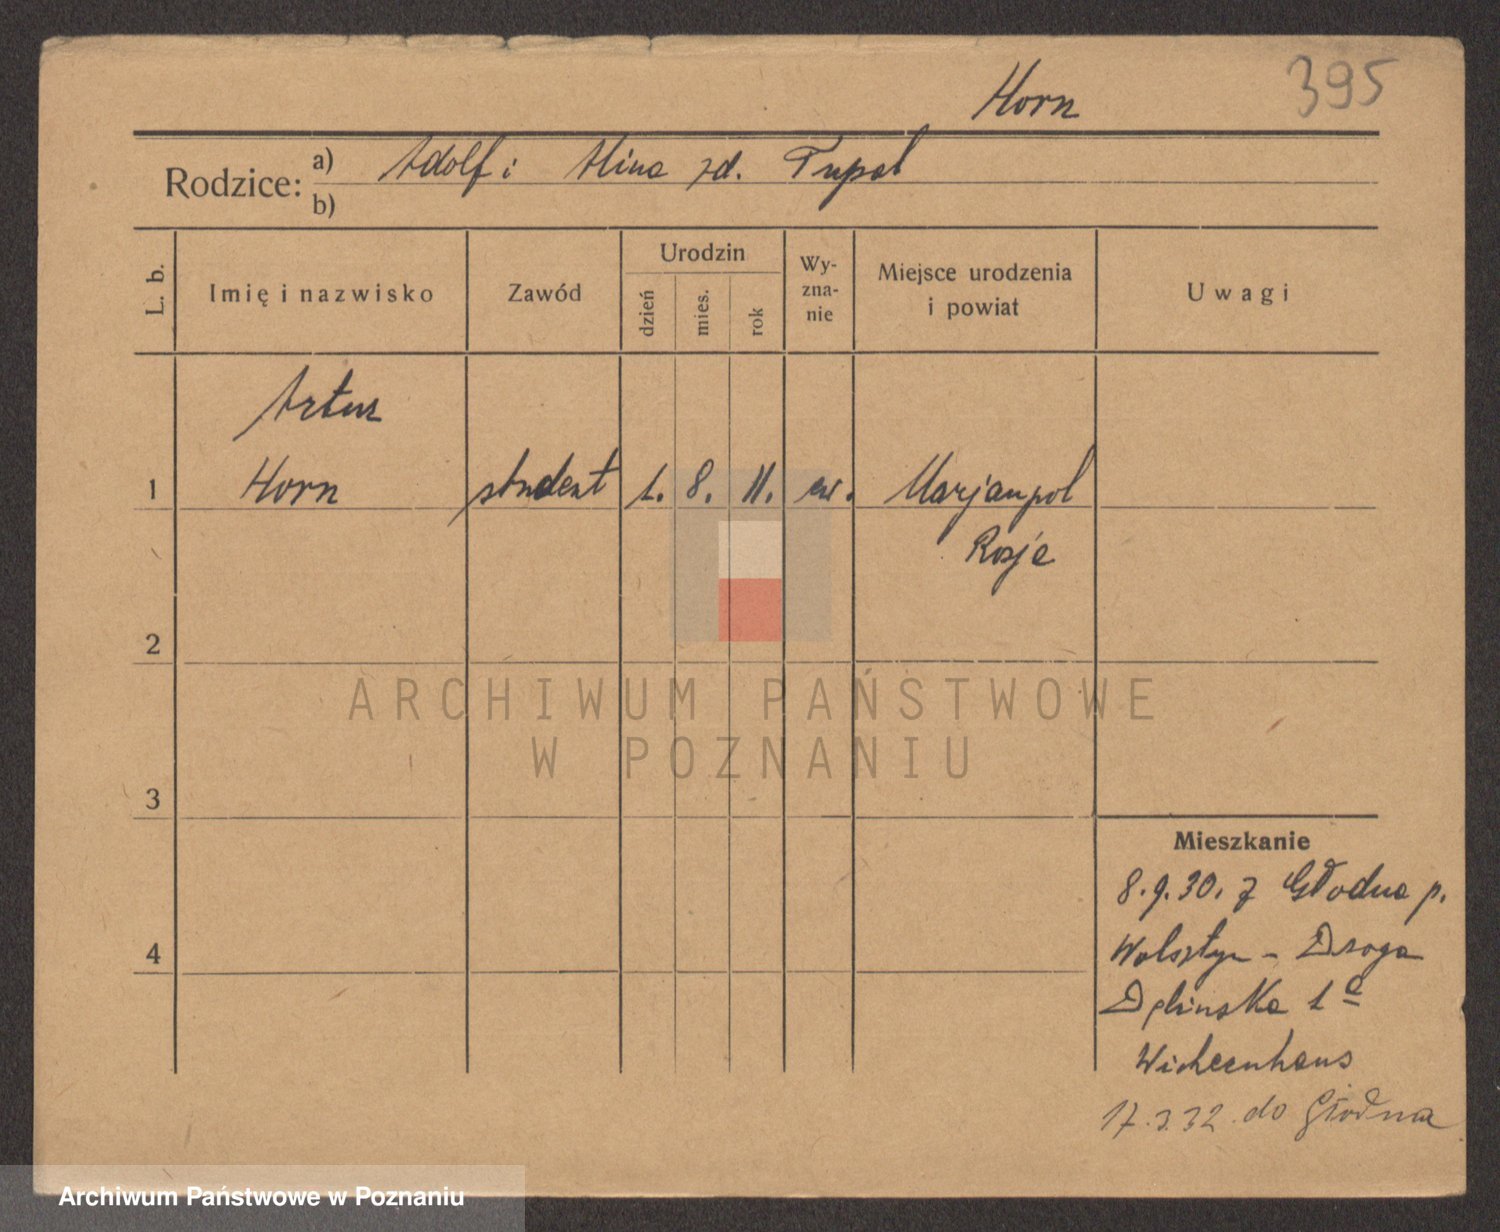 Horn
395
Rodzice: a) Adolf i Alina zd. Tupal
b)
L. b.
Imię i nazwisko
Zawód
Urodzin
dzień
mies.
rok
Wy-
zna-
nie
Miejsce urodzenia
i powiat
Uwagi
Artur
1 Horn student 1. 8. 11. ew. Marjanpol
Rosja
2
3
4
ARCHIWUM PAŃSTWOWE
W POZNANIU
Mieszkanie
8.9.30. z Głodna p.
Wolsztyn - Droga
Dębinska 1 a
Wichernhaus
17.3.32. do Głodna
Archiwum Państwowe w Poznaniu